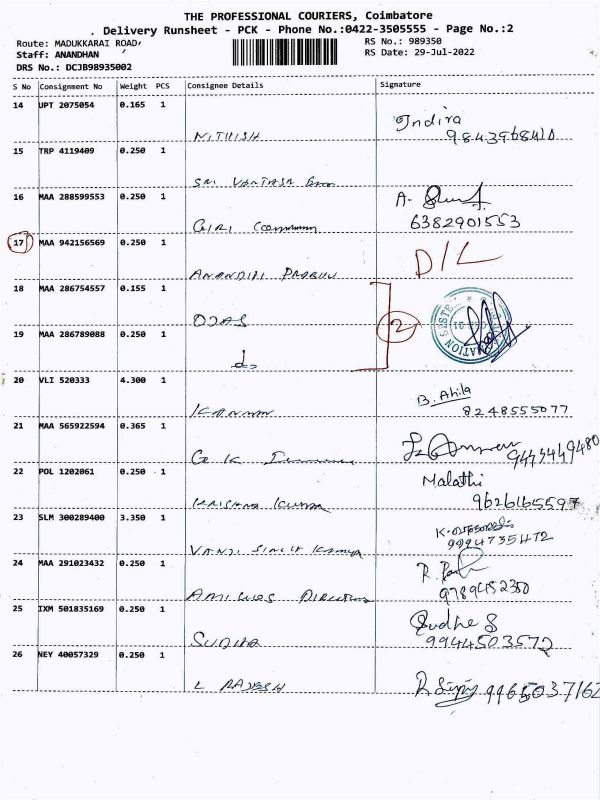 THE PROFESSIONAL COURIERS, Coimbatore
. Delivery Runsheet - PCK - Phone No.:0422-3505555 - Page No.:2
Route: MADUKKARAI ROAD,
RS No.: 989350
Staff: ANANDHAN
RS Date: 29-Jul-2022
DRS No.: DCJB98935002
S No Consignment No Weight PCS Consignee Details Signature
14 UPT 2075054 0.165 1
NITHISH Indira
9843968410
15 TRP 4119409 0.250 1
SRI
16 MAA 288599553 0.250 1
GIRI A.
6382901553
17 MAA 942156569 0.250 1
ANANDHI PRABHU D/L
18 MAA 286754557 0.155 1
OJAS 2
19 MAA 286789088 0.250 1
do
20 VLI 520333 4.300 1
KANNAN B. Ahila
8248555077
21 MAA 565922594 0.365 1
G K
22 POL 1202061 0.250 1 Malathi
KRISHNA KUMAR 9626165597
23 SLM 300289400 3.350 1
9994735472
24 MAA 291023432 0.250 1
R.
9789452350
25 IXM 501835169 0.250 1
SUDHA Sudha S
9944503572
26 NEY 40057329 0.250 1
L RAJESH 9965037162